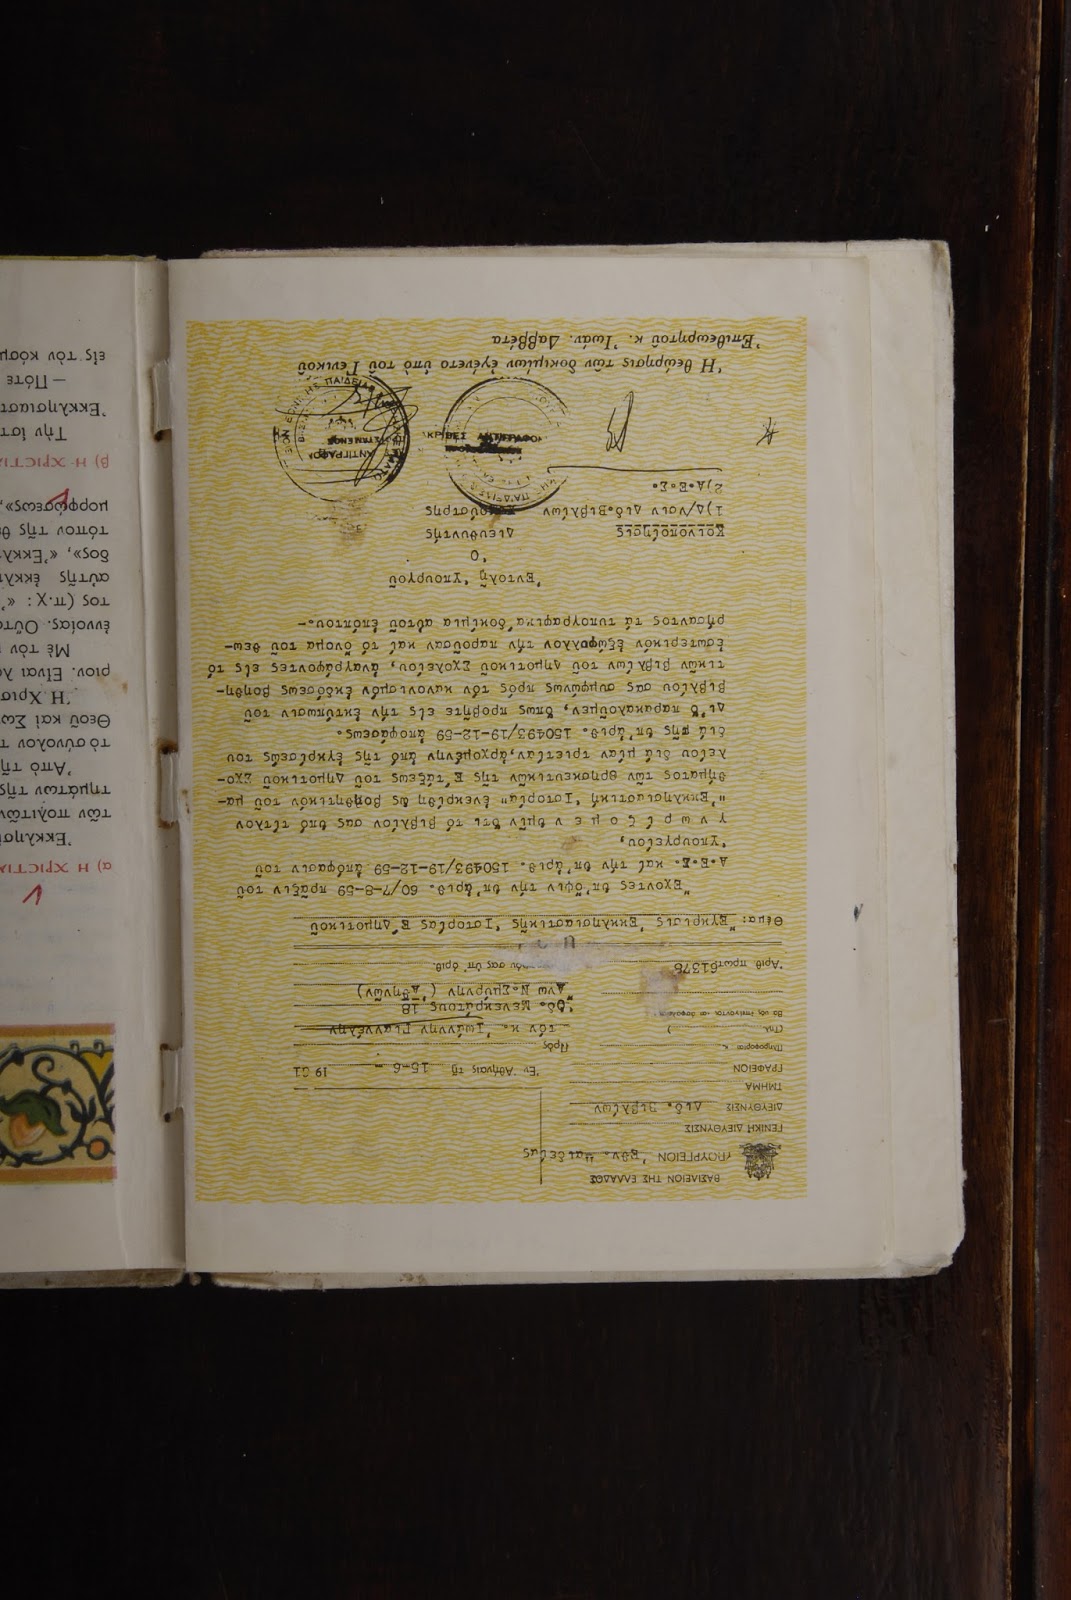 ΒΑΣΙΛΕΙΟΝ ΤΗΣ ΕΛΛΑΔΟΣ
ΥΠΟΥΡΓΕΙΟΝ Ἐθν. Παιδείας
ΓΕΝΙΚΗ ΔΙΕΥΘΥΝΣΙΣ
ΔΙΕΥΘΥΝΣΙΣ Διδ. Βιβλίων
ΤΜΗΜΑ
ΓΡΑΦΕΙΟΝ
Πληροφορίαι κ.
(Τηλ. )
Ἀριθ. πρωτ. 61376
Ἐν Ἀθήναις τῇ 15-6- 1961
Πρὸς
τόν κ. Ἰωάννην Γιαννέλην
Ὁδ. Μενεκράτους 18
Ἄνω Ν.Σμύρνην (Ἀθηνῶν)
σας ὑπ' ἀριθ.
Θέμα: "Ἔγκρισις Ἐκκλησιαστικῆς Ἱστορίας Ε΄Δημοτικοῦ
Ἔχοντες ὑπ'ὄψιν τήν ὑπ'ἀριθ. 60/7-8-59 πρᾶξιν τοῦ
Α.Ε.Σ. καί τήν ὑπ'ἀριθ. 150493/19-12-59 ἀπόφασιν τοῦ
Ὑπουργείου,
γ ν ω ρ ί ζ ο μ ε ν ὑμῖν ὅτι τό βιβλίον σας ὑπό τίτλον
"Ἐκκλησιαστική Ἱστορία" ἐνεκρίθη ὡς βοηθητικόν τοῦ μα-
θήματος τῶν θρησκευτικῶν τῆς Ε΄τάξεως τοῦ Δημοτικοῦ Σχο-
λείου διά μίαν τριετίαν,ἀρχομένην ἀπό τῆς ἐγκρίσεώς του
διά τῆς ὑπ'ἀριθ. 150493/19-12-59 ἀποφάσεως.
Δι'ὅ παρακαλοῦμεν, ὅπως προβῆτε εἰς τήν ἐκτύπωσιν τοῦ
βιβλίου σας συμφώνως πρός τόν κανονισμόν ἐκδόσεως βοηθη-
τικῶν βιβλίων τοῦ Δημοτικοῦ Σχολείου, ἀναγράφοντες εἰς τό
ἐσωτερικόν ἐξώφυλλον τήν παροῦσαν καί τό ὄνομα τοῦ θεω-
ρήσαντος τά τυπογραφικά δοκίμια αὐτοῦ ἐπόπτου.-
Ἐντολῇ Ὑπουργοῦ
Ὁ
Διευθυντής
Κοινοποίησις
1)Δ/νσιν Διδ.Βιβλίων
2)Α.Ε.Σ.
ΑΚΡΙΒΕΣ ΑΝΤΙΓΡΑΦΟΝ
ΑΝΤΙΓΡΑΦΟΝ
Ἡ θεώρησις τῶν δοκιμίων ἐγένετο ὑπὸ τοῦ Γενικοῦ
Ἐπιθεωρητοῦ κ. Ἰωάν. Δαββέτα
α) Η ΧΡΙΣΤΙΑ
Ἐκκλησί
τῶν πολιτῶν
τημάτων τῆς
Ἀπὸ τῆ
τὸ σύνολον τ
Θεοῦ καὶ Σω
Ἡ Χρισ
ριον. Εἶναι λο
Μὲ τὸν
ἐννοίας. Οὕτο
τος (π.χ: «Ἐ
αὐτῆς ἐκκλη
δος», «Ἐκκλ
τόπον τῆς θ
μορφώσεως»,
β) Η ΧΡΙΣΤΙΑ
Τὴν ἱστ
Ἐκκλησιαστ
— Πότε
εἰς τὸν κόσμ